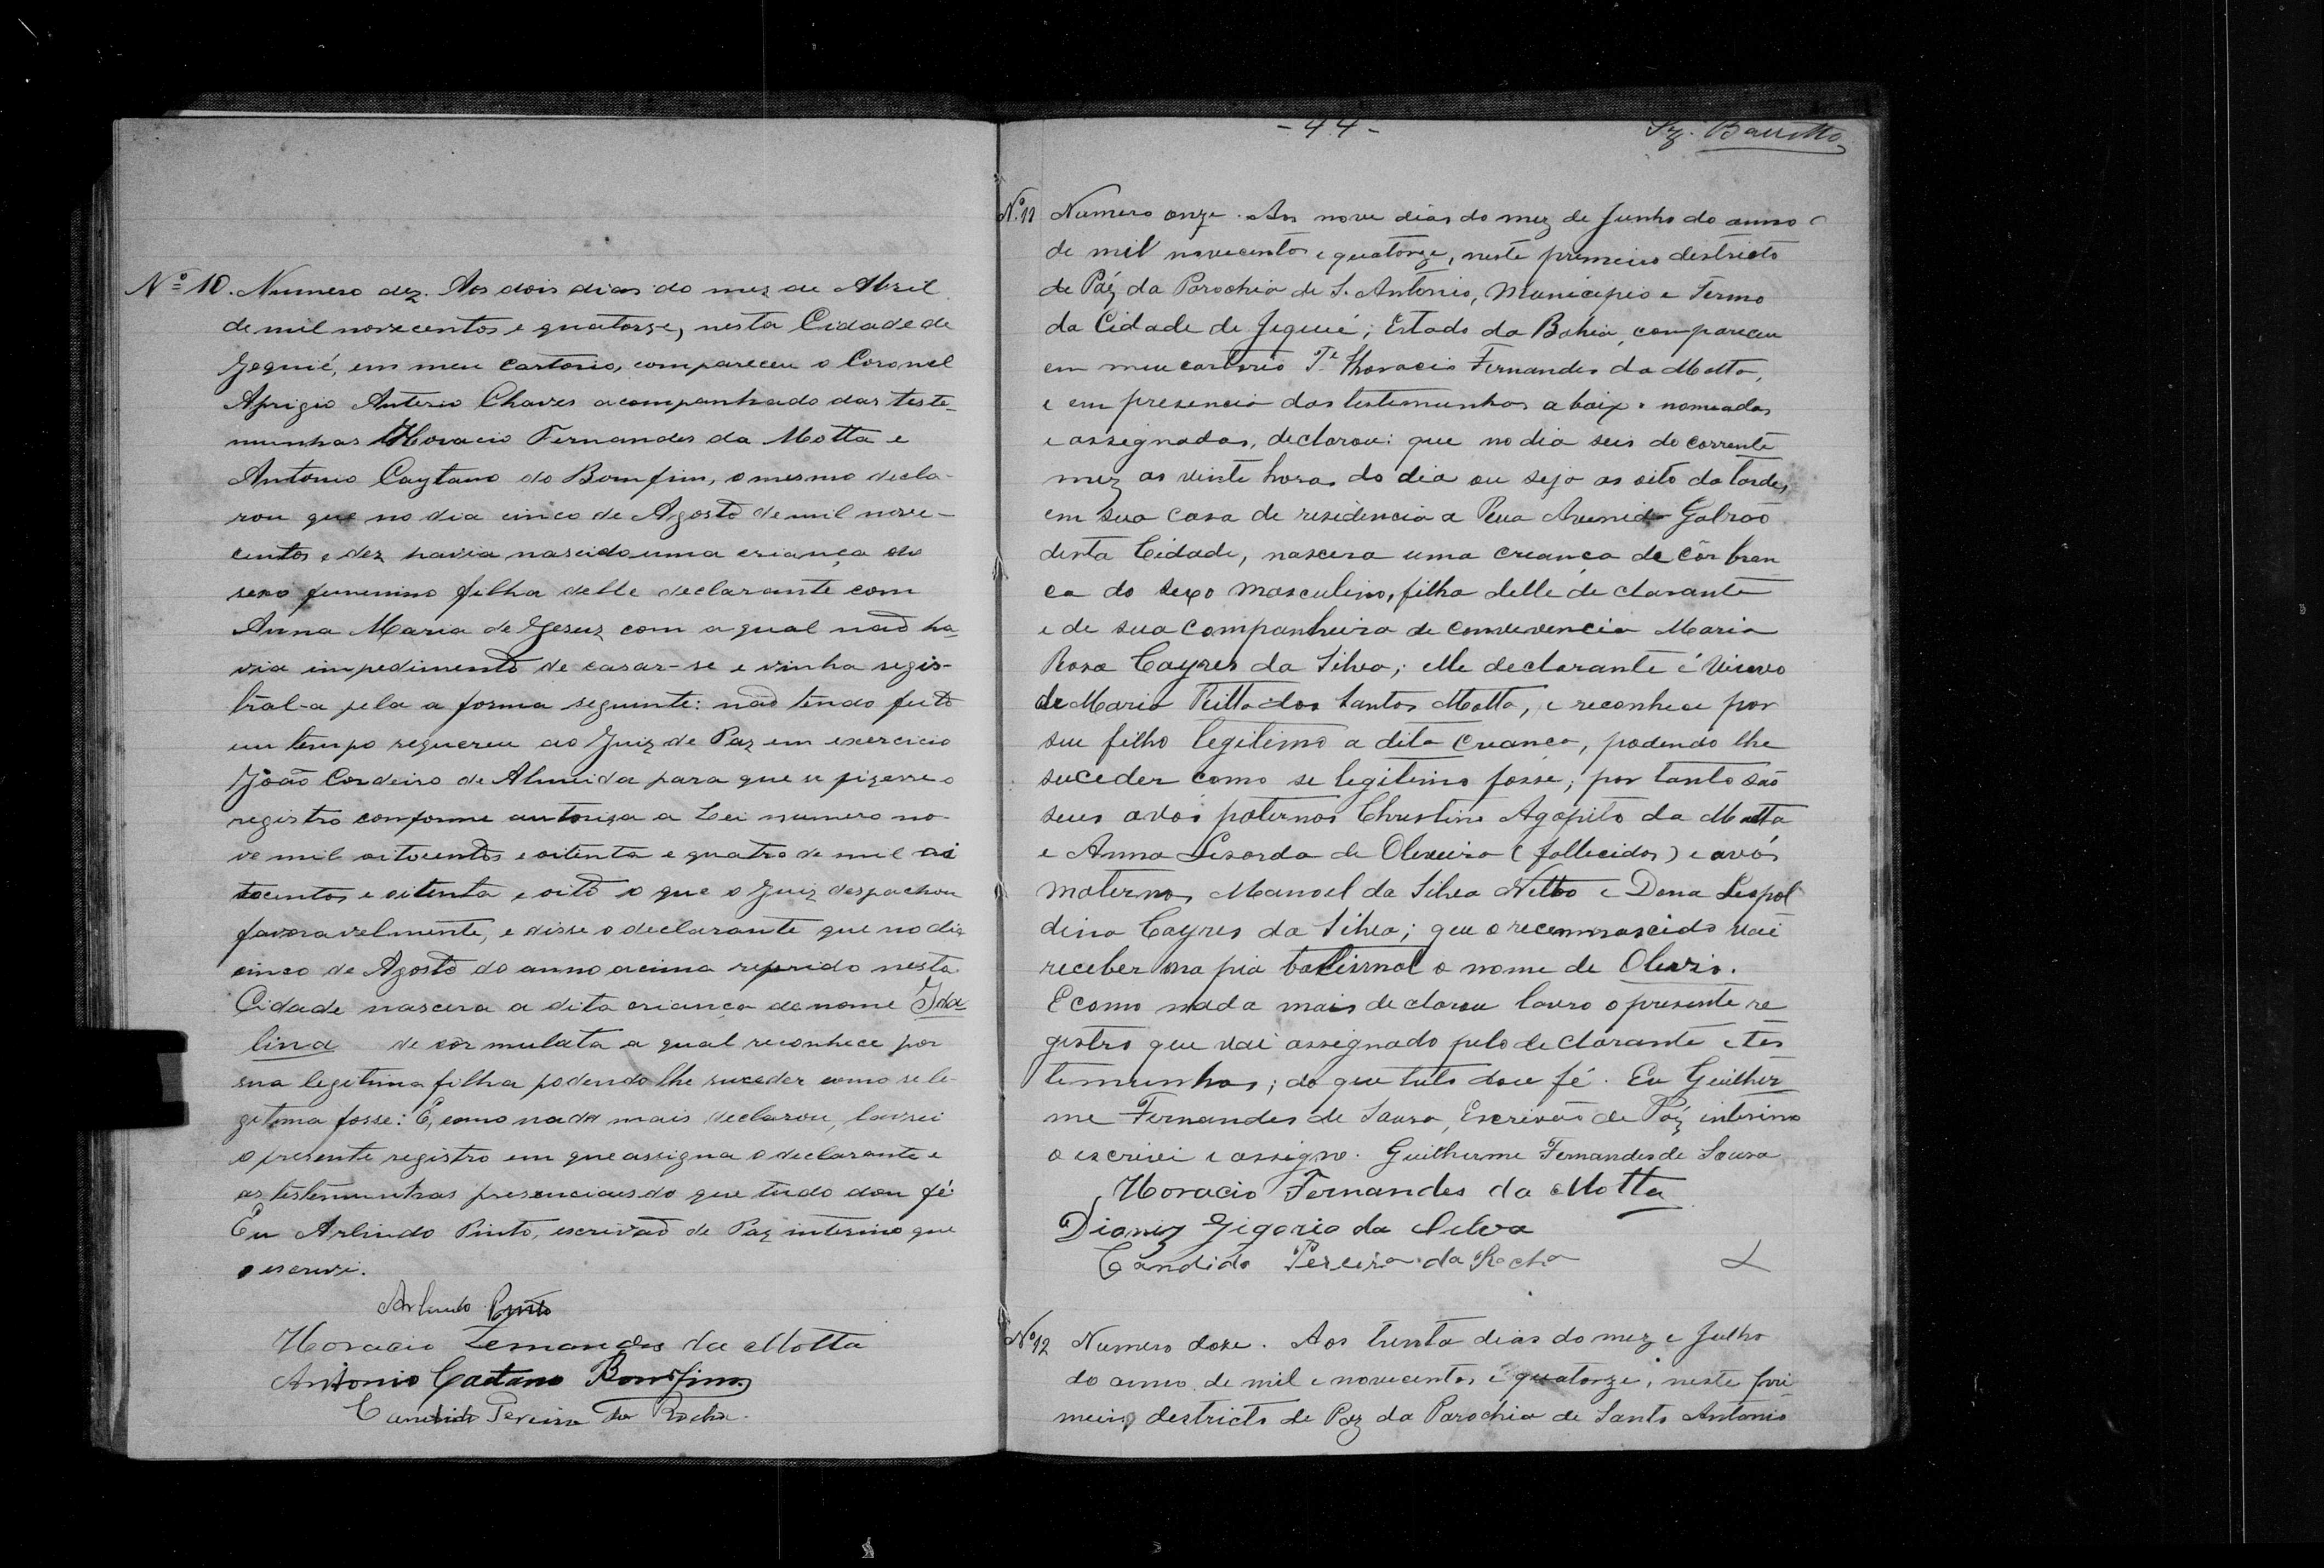 Nº 10. Numero dez. Aos dois dias do mez de Abril
de mil novecentos e quatorze, nesta Cidade de
Jequié, em meu cartorio, compareceu o Coronel
Aprigio Anterio Chaves acompanhado das teste-
munhas Horacio Fernandes da Motta e
Antonio Caytano do Bomfim, o mesmo decla-
rou que no dia cinco de Agosto de mil nove-
centos e dez havia nascido uma criança do
sexo femenino filha delle declarante com
Anna Maria de Jesus com a qual não ha-
via impedimento de casar-se e vinha regis-
tral-a pela a forma seguinte: não tendo feito
em tempo requereu ao Juiz de Paz em exercicio
João Cordeiro de Almeida para que se fizesse o
registro conforme autoriza a Lei numero no-
ve mil oitocentos e oitenta e quatro de mil oi
tocentos e oitenta e oito o que o Juiz despachou
favoravelmente, e disse o declarante que no dia
cinco de Agosto do anno acima referido nesta
Cidade nascera a dita criança de nome Ida-
lina de côr mulata a qual reconhece por
sua legitima filha podendo lhe suceder como se le-
getima fosse: E, como nada mais declarou, lavrei
o presente registro em que assigna o declarante e
as testemunhas presenciaes do que tudo dou fé
Eu Arlindo Pinto, escrivão de Paz interino que
o escrevi.
Arlindo Pinto
Horacio Fernandes da Motta
Antonio Caetano Bomfim
Candido Pereira da Rocha.
- 44 -
Barretto
Nº 11 Numero onze. Aos nove dias do mez de Junho do anno
de mil novecentos e quatorze, neste primeiro destricto
de Páz da Parochia de S. Antonio, Municipio e Termo
da Cidade de Jequié; Estado da Bahia, compareceu
em meu cartorio Te Horacio Fernandes da Motta,
e em presencia das testemunhas abaixo nomeadas
e assegnadas, declarou: que no dia seis do corrente
mez as vinte horas do dia ou seja as oito da tarde,
em sua casa de residencia a Rua Avenida Galvão
desta Cidade, nascera uma creança de côr bran
ca do sexo masculino, filha delle declarante
e de sua companheira de convevencia Maria
Rosa Cayres da Silva; elle declarante é viuvo
de Maria Ritta dos Santos Motta, e reconhece por
seu filho legitimo a dita creança, podendo lhe
suceder como se legitimo fosse; por tanto são
seus avós paternos Christino Agapito da Motta
e Anna Lisarda de Oliveira (fallecidos) e avós
maternos Manoel da Silva Netto e Dona Leopol
dina Cayres da Silva; que o recemnascido vai
receber na pia batismal o nome de Olivio.
E como nada mais declarou lavro o presente re
gistro que vai assegnado pelo declarante e tes
temunhas; do que tudo dou fé. Eu Guilher
me Fernandes de Sousa, Escrivão de Páz interino
o escrivi e assigno. Guilherme Fernandes de Sousa
Horacio Fernandes da Motta
Dioniz Gigorio da Silva
Candido Pereira da Rocha
Nº 12 Numero doze. Aos trinta dias do mez e Julho
do anno de mil e novecentos e quatorze, neste pri
meiro destricto de Paz da Parochia de Santo Antonio